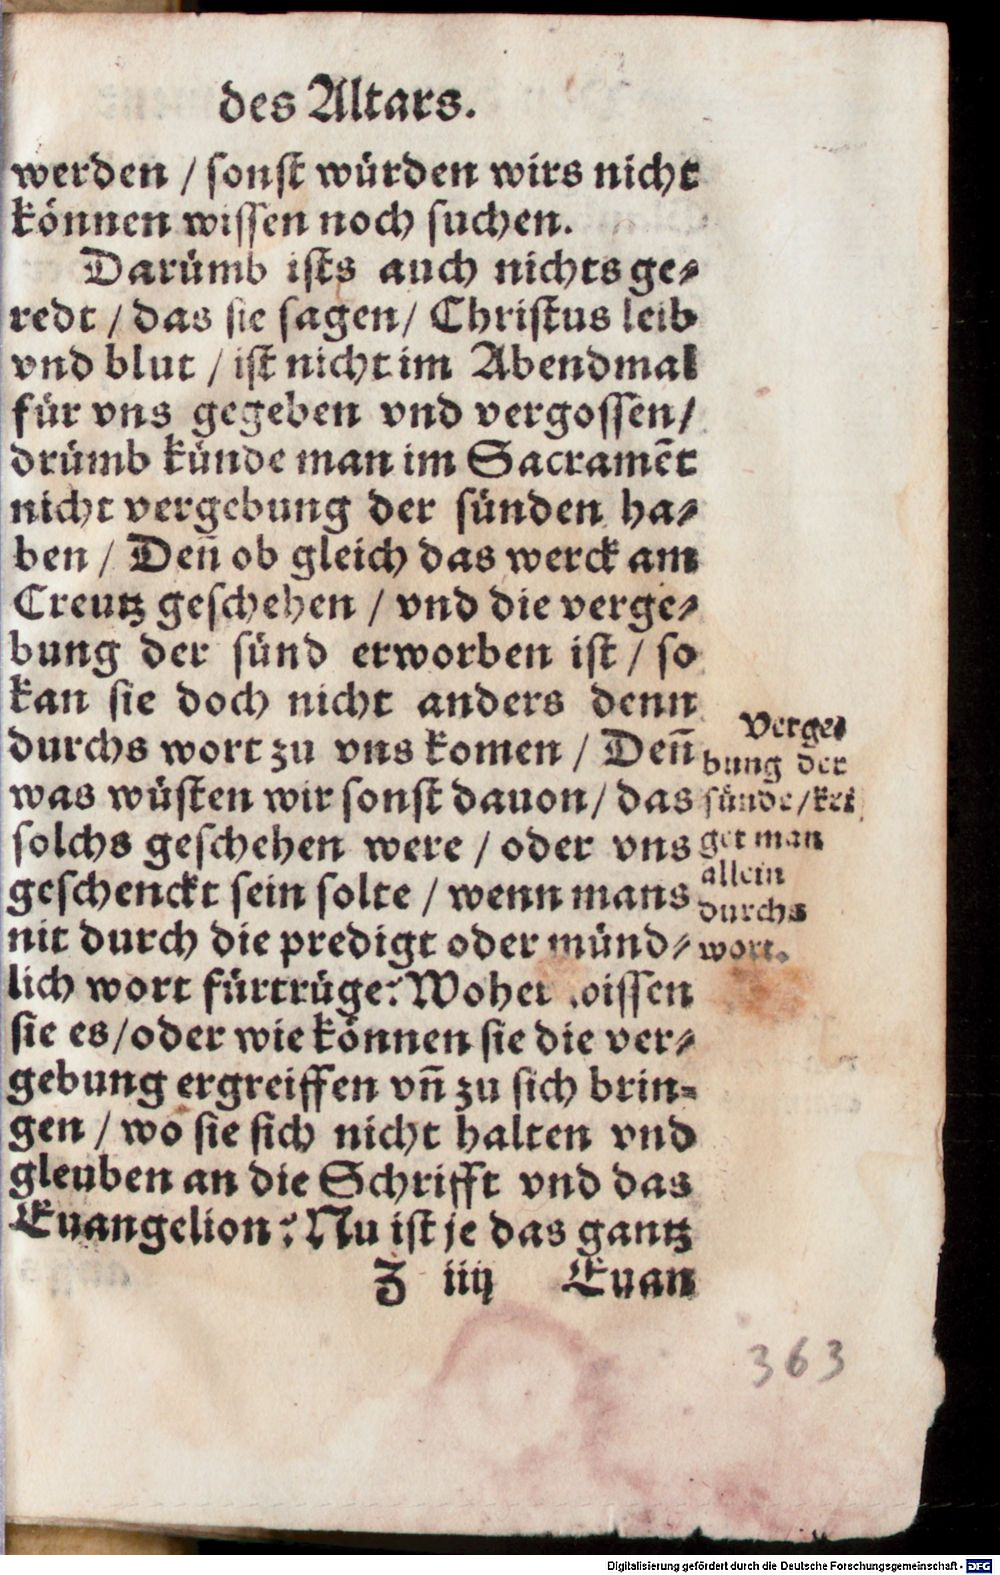 des Altars.
werden / sonst würden wirs nicht
können wissen noch suchen.
Darümb ists auch nichts ge⸗
redt / das sie sagen / Christus leib
vnd blut / ist nicht im Abendmal
für vns gegeben vnd vergossen /
drümb künde man im Sacramēt
nicht vergebung der sünden ha⸗
ben / Den̄ ob gleich das werck am
Creutz geschehen / vnd die verge⸗
bung der sünd erworben ist / so
kan sie doch nicht anders denn
durchs wort zu vns komen / Den̄
was wüsten wir sonst dauon / das
solchs geschehen were / oder vns
geschenckt sein solte / wenn mans
nit durch die predigt oder münd⸗
lich wort fürtrüge? Woher wissen
sie es / oder wie können sie die ver⸗
gebung ergreiffen vn̄ zu sich brin⸗
gen / wo sie sich nicht halten vnd
gleuben an die Schrifft vnd das
Euangelion? Nu ist je das gantz
Z iiij Euan
Verge⸗
bung der
sünde / krei
get man
allein
durchs
wort.
363
Digitalisierung gefördert durch die Deutsche Forschungsgemeinschaft - DFG